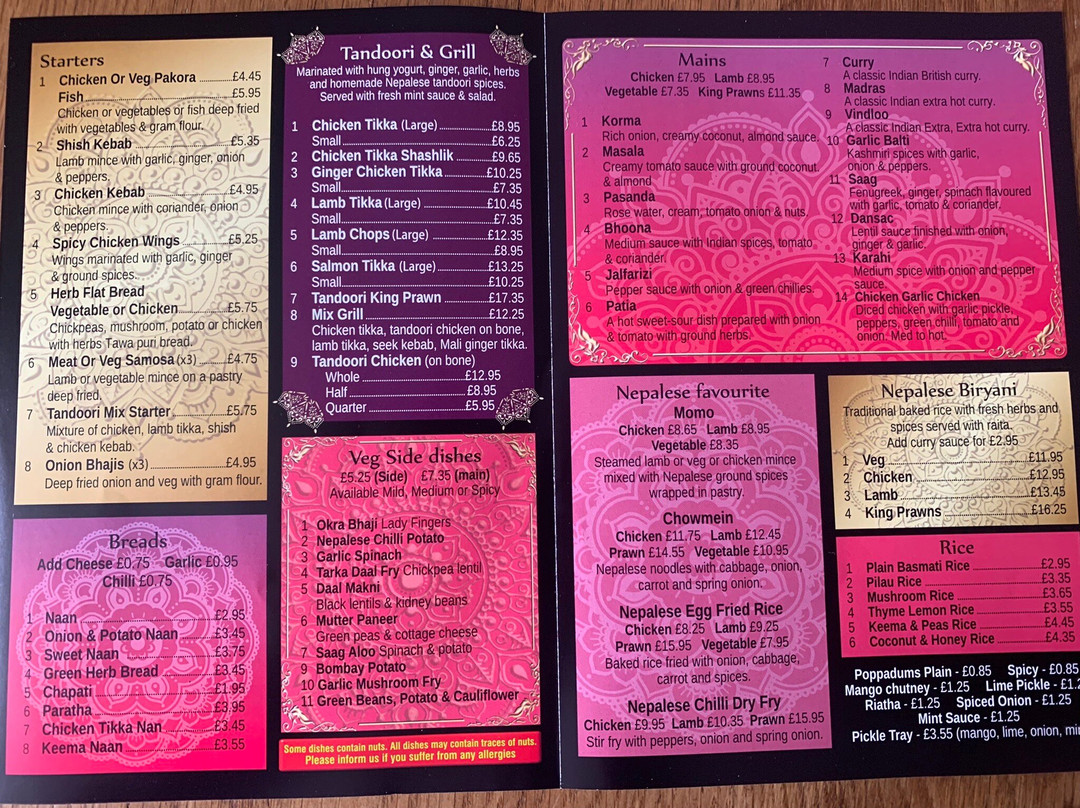 Starters
1 Chicken Or Veg Pakora ............£4.45
Fish..............................................£5.95
Chicken or vegetables or fish deep fried
with vegetables & gram flour.
2 Shish Kebab................................£5.35
Lamb mince with garlic, ginger, onion
& peppers.
3 Chicken Kebab............................£4.95
Chicken mince with coriander, onion
& peppers.
4 Spicy Chicken Wings................£5.25
Wings marinated with garlic, ginger
& ground spices.
5 Herb Flat Bread
Vegetable or Chicken....................£5.75
Chickpeas, mushroom, potato or chicken
with herbs Tawa puri bread.
6 Meat Or Veg Samosa (x3)..........£4.75
Lamb or vegetable mince on a pastry
deep fried.
7 Tandoori Mix Starter..................£5.75
Mixture of chicken, lamb tikka, shish
& chicken kebab.
8 Onion Bhajis (x3)........................£4.95
Deep fried onion and veg with gram flour.
Breads
Add Cheese £0.75 Garlic £0.95
Chilli £0.75
1 Naan..........................................£2.95
2 Onion & Potato Naan...............£3.45
3 Sweet Naan..............................£3.75
4 Green Herb Bread....................£3.45
5 Chapati.....................................£1.95
6 Paratha.....................................£3.95
7 Chicken Tikka Nan...................£3.45
8 Keema Naan............................£3.55
Tandoori & Grill
Marinated with hung yogurt, ginger, garlic, herbs
and homemade Nepalese tandoori spices.
Served with fresh mint sauce & salad.
1 Chicken Tikka (Large).....................£8.95
Small..................................................£6.25
2 Chicken Tikka Shashlik..................£9.65
3 Ginger Chicken Tikka...................£10.25
Small..................................................£7.35
4 Lamb Tikka (Large).......................£10.45
Small..................................................£7.35
5 Lamb Chops (Large).....................£12.35
Small..................................................£8.95
6 Salmon Tikka (Large)....................£13.25
Small................................................£10.25
7 Tandoori King Prawn...................£17.35
8 Mix Grill.........................................£12.25
Chicken tikka, tandoori chicken on bone,
lamb tikka, seek kebab, Mali ginger tikka.
9 Tandoori Chicken (on bone)
Whole.........................................£12.95
Half...............................................£8.95
Quarter.........................................£5.95
Veg Side dishes
£5.25 (Side) £7.35 (main)
Available Mild, Medium or Spicy
1 Okra Bhaji Lady Fingers
2 Nepalese Chilli Potato
3 Garlic Spinach
4 Tarka Daal Fry Chickpea lentil
5 Daal Makni
Black lentils & kidney beans
6 Mutter Paneer
Green peas & cottage cheese
7 Saag Aloo Spinach & potato
9 Bombay Potato
10 Garlic Mushroom Fry
11 Green Beans, Potato & Cauliflower
Some dishes contain nuts. All dishes may contain traces of nuts.
Please inform us if you suffer from any allergies
Mains
Chicken £7.95 Lamb £8.95
Vegetable £7.35 King Prawns £11.35
1 Korma
Rich onion, creamy coconut, almond sauce.
2 Masala
Creamy tomato sauce with ground coconut
& almond
3 Pasanda
Rose water, cream, tomato onion & nuts.
4 Bhoona
Medium sauce with Indian spices, tomato
& coriander.
5 Jalfarizi
Pepper sauce with onion & green chillies.
6 Patia
A hot sweet-sour dish prepared with onion
& tomato with ground herbs.
7 Curry
A classic Indian British curry.
8 Madras
A classic Indian extra hot curry.
9 Vindloo
A classic Indian Extra, Extra hot curry.
10 Garlic Balti
Kashmiri spices with garlic,
onion & peppers.
11 Saag
Fenugreek, ginger, spinach flavoured
with garlic, tomato & coriander.
12 Dansac
Lentil sauce finished with onion,
ginger & garlic.
13 Karahi
Medium spice with onion and pepper
sauce.
14 Chicken Garlic Chicken
Diced chicken with garlic pickle,
peppers, green chilli, tomato and
onion. Med to hot.
Nepalese favourite
Momo
Chicken £8.65 Lamb £8.95
Vegetable £8.35
Steamed lamb or veg or chicken mince
mixed with Nepalese ground spices
wrapped in pastry.
Chowmein
Chicken £11.75 Lamb £12.45
Prawn £14.55 Vegetable £10.95
Nepalese noodles with cabbage, onion,
carrot and spring onion.
Nepalese Egg Fried Rice
Chicken £8.25 Lamb £9.25
Prawn £15.95 Vegetable £7.95
Baked rice fried with onion, cabbage,
carrot and spices.
Nepalese Chilli Dry Fry
Chicken £9.95 Lamb £10.35 Prawn £15.95
Stir fry with peppers, onion and spring onion.
Nepalese Biryani
Traditional baked rice with fresh herbs and
spices served with raita.
Add curry sauce for £2.95
1 Veg...........................................£11.95
2 Chicken...................................£12.95
3 Lamb........................................£13.45
4 King Prawns............................£16.25
Rice
1 Plain Basmati Rice....................£2.95
2 Pilau Rice..................................£3.35
3 Mushroom Rice.........................£3.65
4 Thyme Lemon Rice....................£3.55
5 Keema & Peas Rice...................£4.45
6 Coconut & Honey Rice..............£4.35
Poppadums Plain - £0.85 Spicy - £0.85
Mango chutney - £1.25 Lime Pickle - £1.2
Riatha - £1.25 Spiced Onion - £1.25
Mint Sauce - £1.25
Pickle Tray - £3.55 (mango, lime, onion,